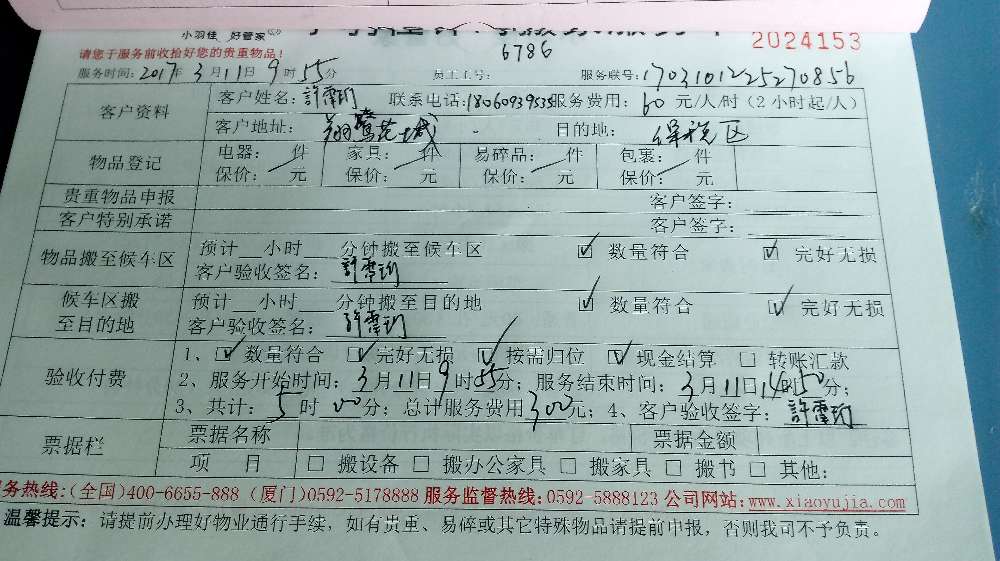 小羽佳 好管家
6786
2024153
请您于服务前收拾好您的贵重物品！
服务时间：2017年3月11日9时55分 员工工号： 服务联号：1703101225270856
客户资料 客户姓名：許霈珩 联系电话：18060939535 服务费用：60元/人/时（2小时起/人）
客户地址：翔鹭花城 - 目的地：保税区
物品登记 电器： 件 家具： 件 易碎品： 件 包裹： 件
保价： 元 保价： 元 保价： 元 保价： 元
贵重物品申报 客户签字：
客户特别承诺 客户签字：
物品搬至候车区 预计__小时____分钟搬至候车区 ☑ 数量符合 ☑ 完好无损
客户验收签名：許霈珩
候车区搬至目的地 预计__小时____分钟搬至目的地 ☑ 数量符合 ☑ 完好无损
客户验收签名：許霈珩
验收付费 1、☑ 数量符合 ☑ 完好无损 ☑ 按需归位 ☑ 现金结算 □ 转账汇款
2、服务开始时间：3月11日9时55分；服务结束时间：3月11日14时50分；
3、共计：5时00分；总计服务费用300元；4、客户验收签字：許霈珩
票据栏 票据名称 票据金额
项 目 □ 搬设备 □ 搬办公家具 □ 搬家具 □ 搬书 □ 其他：
务热线：(全国)400-6655-888 (厦门)0592-5178888 服务监督热线：0592-5888123 公司网站：www.xiaoyujia.com
温馨提示：请提前办理好物业通行手续，如有贵重、易碎或其它特殊物品请提前申报，否则我司不予负责。